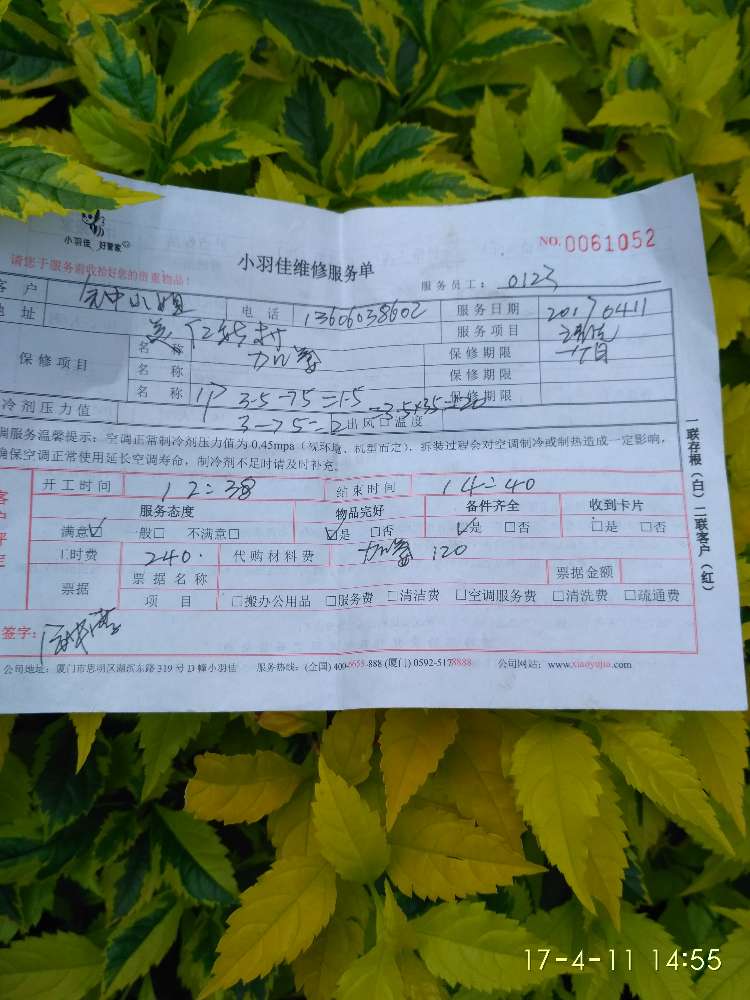 小羽佳 好管家
小羽佳维修服务单
NO.0061052
请您于服务前收拾好您的贵重物品!
服务员工: 0123
客 户 小姐 电 话 13606038602 服务日期 20170411
地 址 服务项目
保修项目 名 称 加氟 保修期限 一个月
名 称 保修期限
名 称 1P 3.5-75=1.5 保修期限
冷剂压力值 3-75=2 出风口温度
调服务温馨提示: 空调正常制冷剂压力值为 0.45mpa (气环境、机型而定), 拆装过程会对空调制冷或制热造成一定影响,
确保空调正常使用延长空调寿命, 制冷剂不足时请及时补充。
开工时间 12:38 结束时间 14:40
服务态度 物品完好 备件齐全 收到卡片
满意☑ 一般□ 不满意□ ☑是 □否 ☑是 □否 □是 □否
工时费 240. 代购材料费 加氟 120
票据 票据名称 票据金额
项 目 □搬办公用品 □服务费 □清洁费 □空调服务费 □清洗费 □疏通费
签字:
公司地址: 厦门市思明区湖滨东路 319 号 D 幢小羽佳 服务热线: (全国) 400-6655-888 (厦门) 0592-5178888 公司网站: www.xiaoyujia.com
一联存根(白) 二联客户(红)
17-4-11 14:55